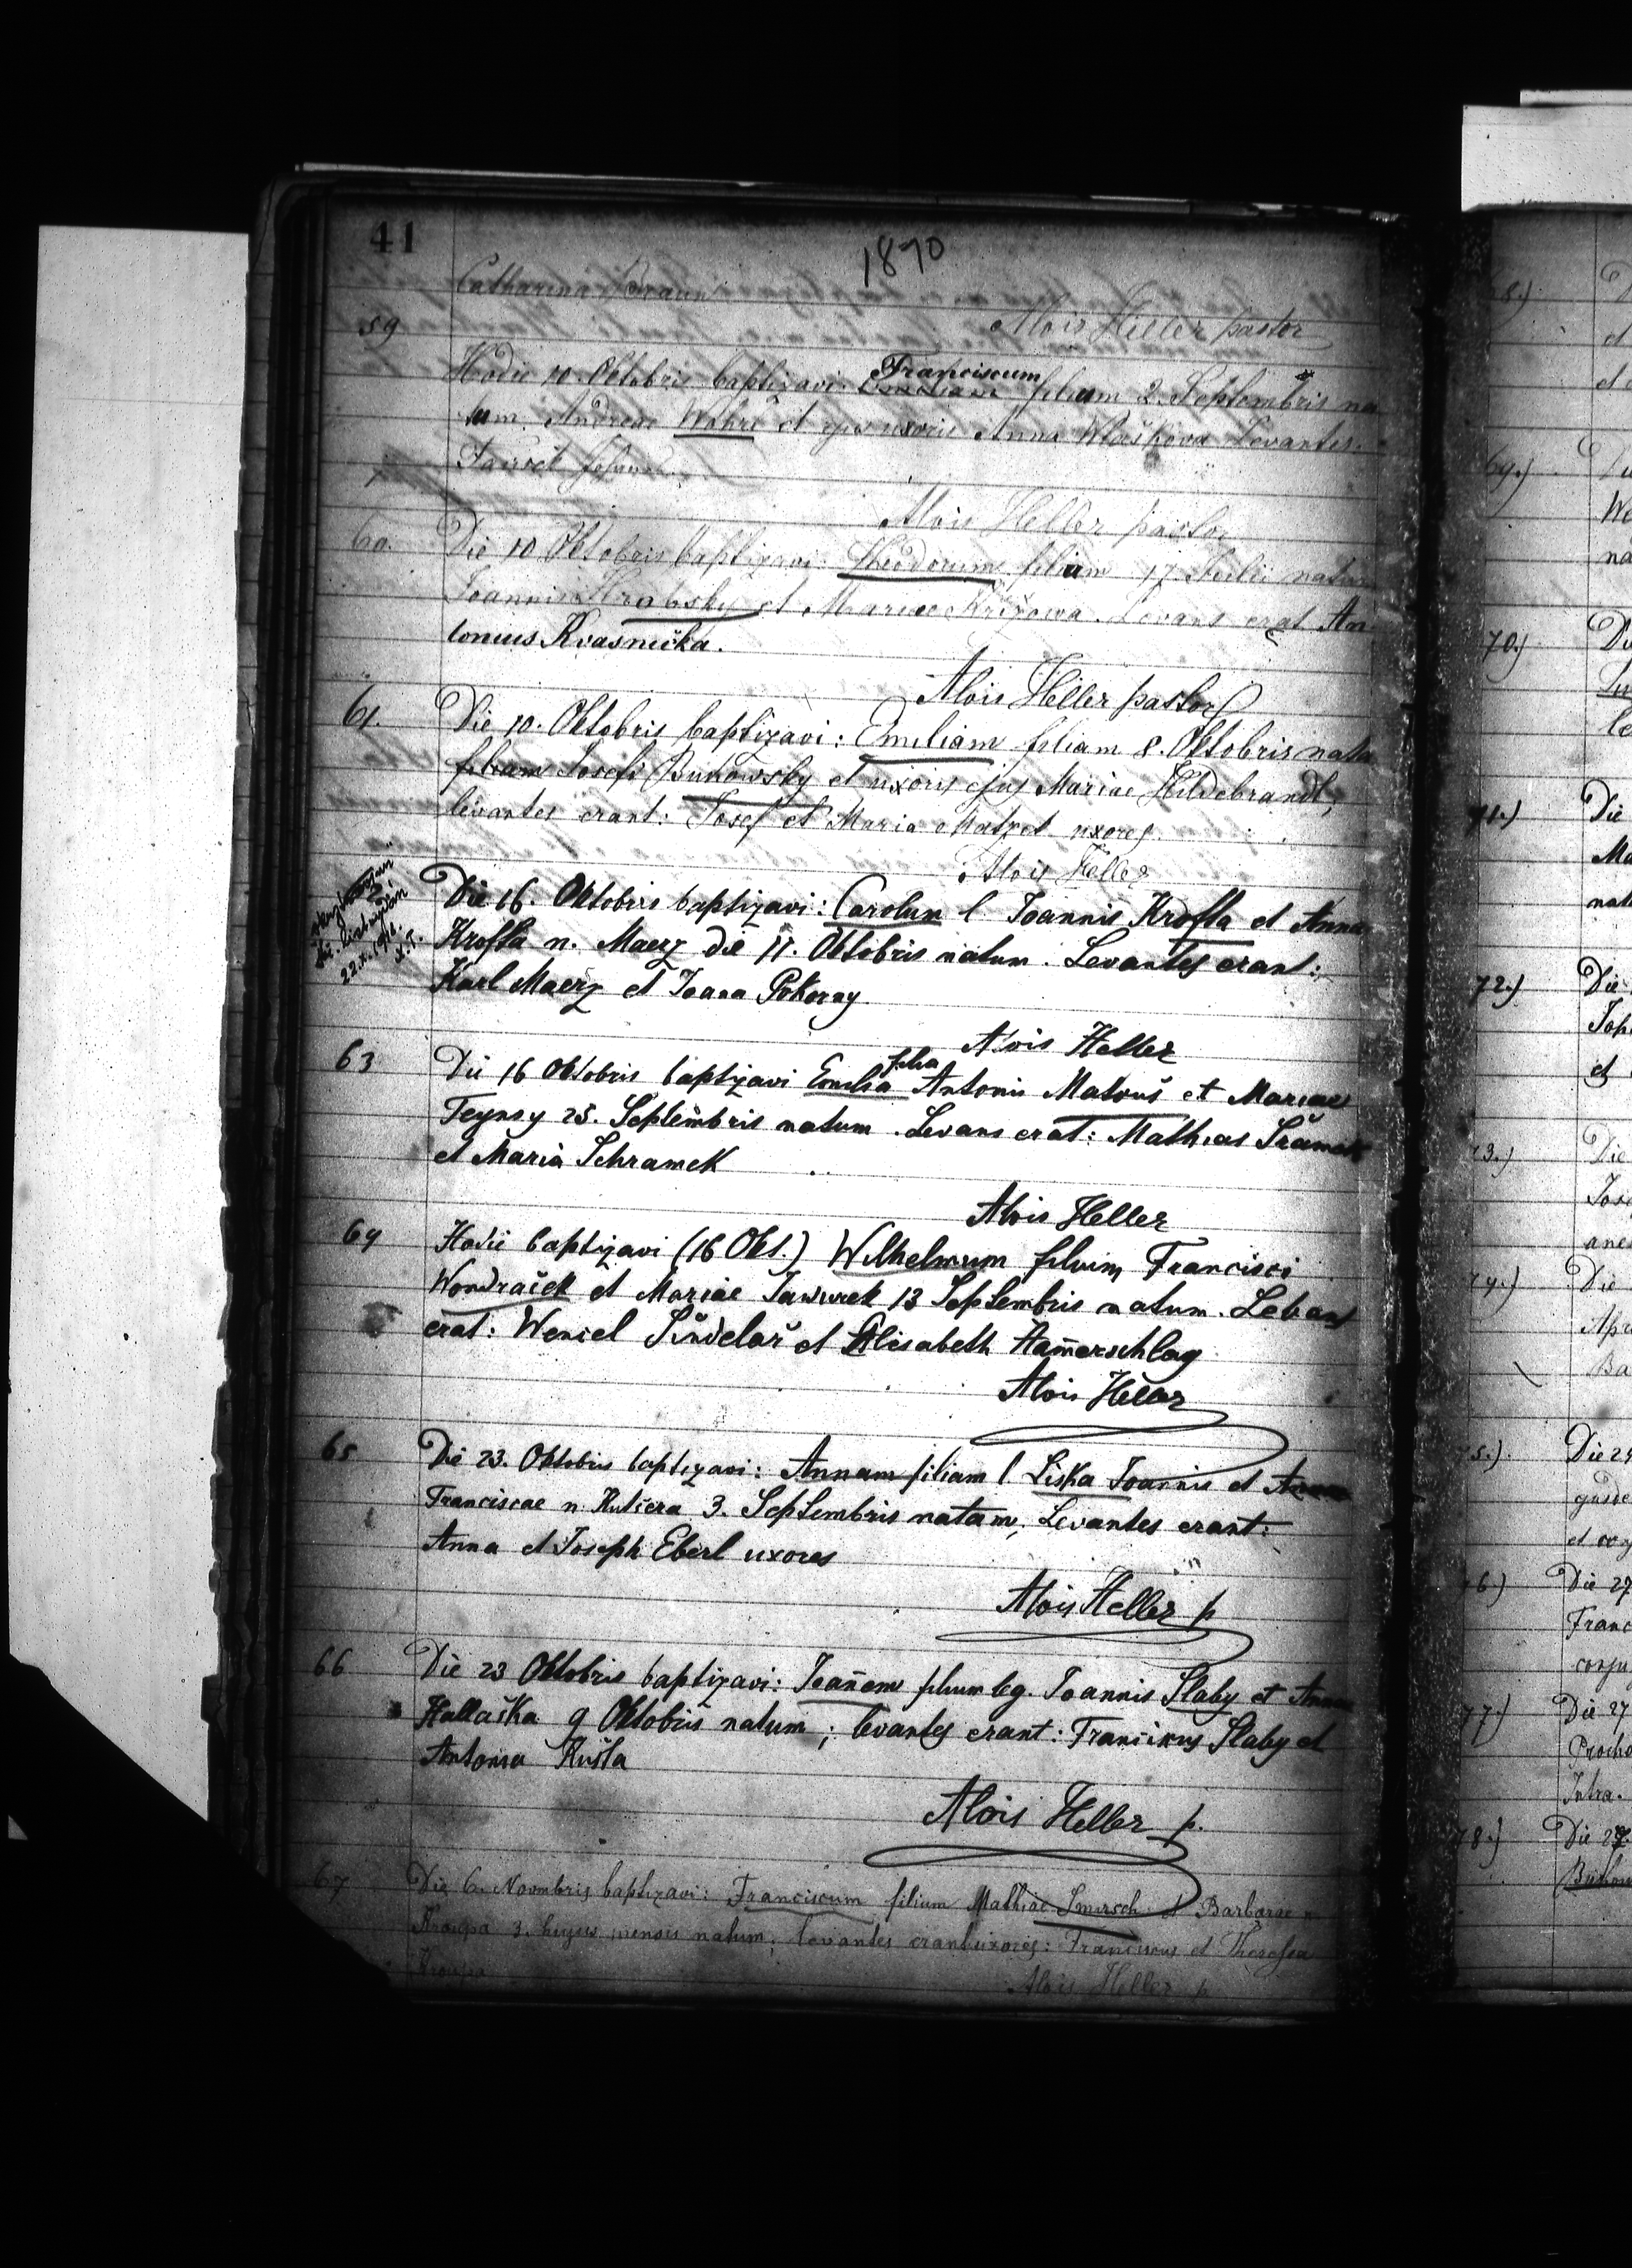 41
1870
Catharina Braun
Alois Heller pastor
59
Hodie 10. Oktobris baptizavi: Franciscum filium 2. Septembris na
tum. Andreae et ejus uxoris Anna Levantes.
Alois Heller pastor
60. Die 10 Oktobris baptizavi: Theodorum filium 17 natum
Joannis Hrabsky et Mariae Křížowa. Levans erat An
tonius Kvasnička.
Alois Heller pastor
61. Die 10. Oktobris baptizavi: Emiliam filiam 8. Oktobris nata
filiam Josefi Bukowsky et uxoris ejus Mariae Hildebrandt,
levantes erant: Josef et Maria Matzet uxores.
Alois Heller
22.X.
Die 16. Oktobris baptizavi: Carolum l. Joannis Krofta et Anna
Krofta n. Maerz die 11. Oktobris natum. Levantes erant:
Karl Maerz et Joana Pokorny
Alois Heller
63 Die 16 Oktobris baptizavi Emilia filia Antonii Matouš et Mariae
Teynsy 25. Septembris natum. Levans erat: Mathias Šramek
et Maria Schramek
Alois Heller
64 Hodie baptizavi (16 Okt.) Wilhelmum filium Francisci
Wondraček et Mariae Jawurek 13 Septembris natum. Levans
erat: Wencel Šindelař et Elisabeth Ham̄erschlag
Alois Heller
65 Die 23. Oktobris baptizavi: Annam filiam l Liska Joannis et
Franciscae n. Kučera 3. Septembris natam, Levantes erant:
Anna et Joseph Eberl uxores
Alois Heller p
66 Die 23 Oktobris baptizavi: Joan̄em filium leg. Joannis Slaby et Anna
Hallaška 9 Oktobris natum; levantes erant: Francikus Slaby et
Antonia Kušta
Alois Heller p.
67 Die 6. Novmbris baptizavi: Franciscum filium Mathiae Smrsch et Barbarae n
Kroupa 3. hujus mensis natum; levantes erant uxores: Franciscus et Theresia
Kroupa
Alois Heller p.
69.)
70.)
71.)
Die
72.)
Die
et
Die
Die
Die 27
Franc
77.)
Die 27
78.)